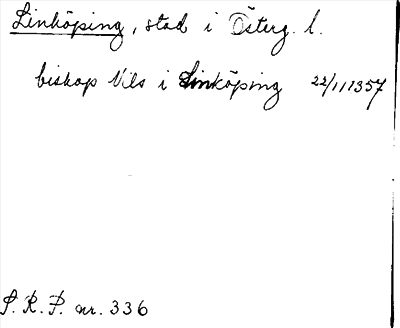 Linköping, stad i Österg. l.
biskop Nils i Linköping 22/1 1357
S. R. P. nr. 336